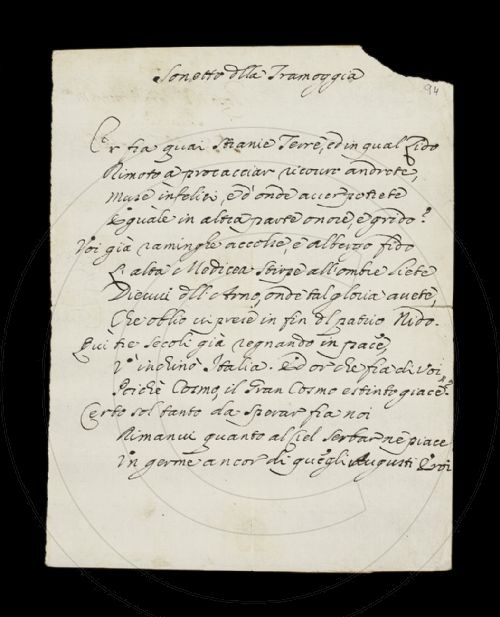 Sonetto della Tramoggia
94
Or fia quai Stranie Terre, ed in qual Lido
Rimoto a procacciar ricovro andrete,
Muse infelici, e d'onde aver potrete
Eguale in altra parte onore, e grido?
Voi già raminghe accolse, e albergo fido
L'alta Medicea Stirpe all'ombre liete
Dievvi dell'Arno, onde tal gloria avete,
Che oblio vi prese in fin del patrio Nido.
Qui tre Secoli già regnando in pace,
V'inchinò Italia. Ed or che fia di Voi,
Poichè Cosmo, il Gran Cosmo estinto giace?
Certo sol tanto da sperar fia noi
Rimanvi quanto al Ciel serbar ne piace
Un germe ancor di quegli Augusti Eroi